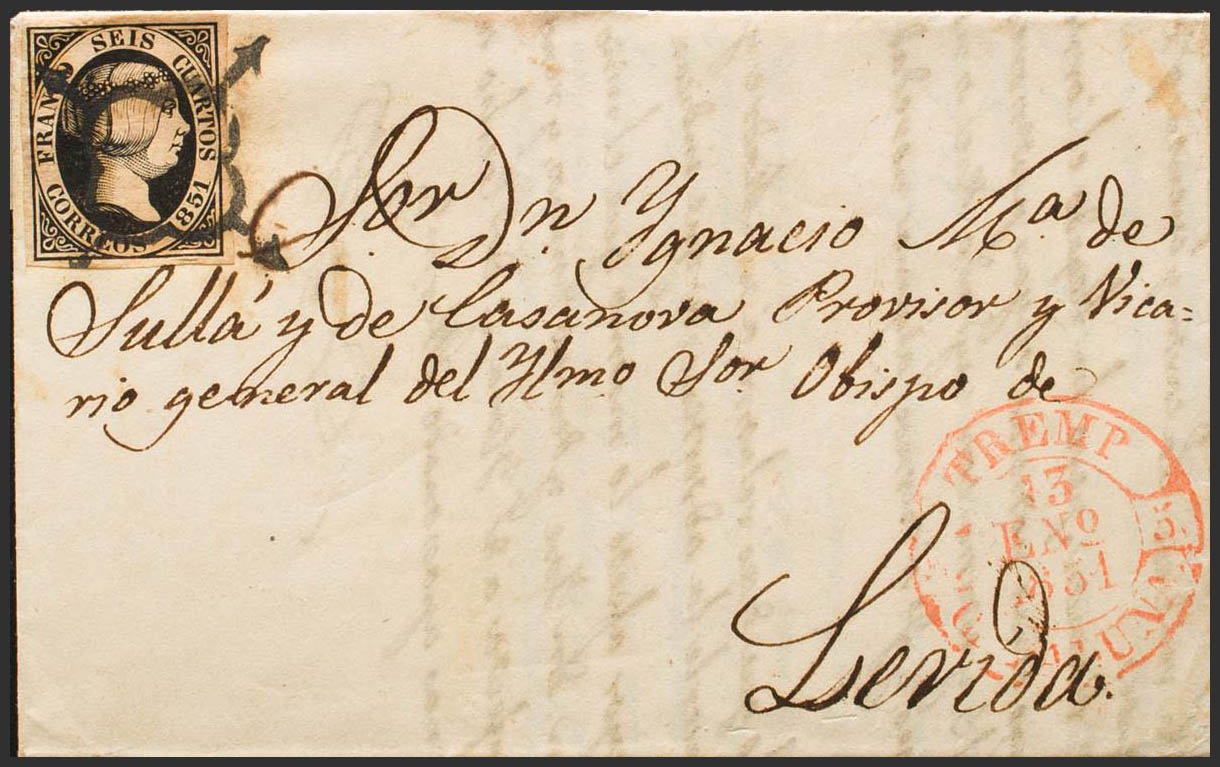 FRANCO SEIS CUARTOS
CORREOS 1851
Sor. Dn. Ygnacio Ma. de
Sullá y de Casanova Provisor y Vica=
rio general del Ylmo Sor. Obispo de
Lerida.
TREMP
13
ENO
1851
CATALUNA
5